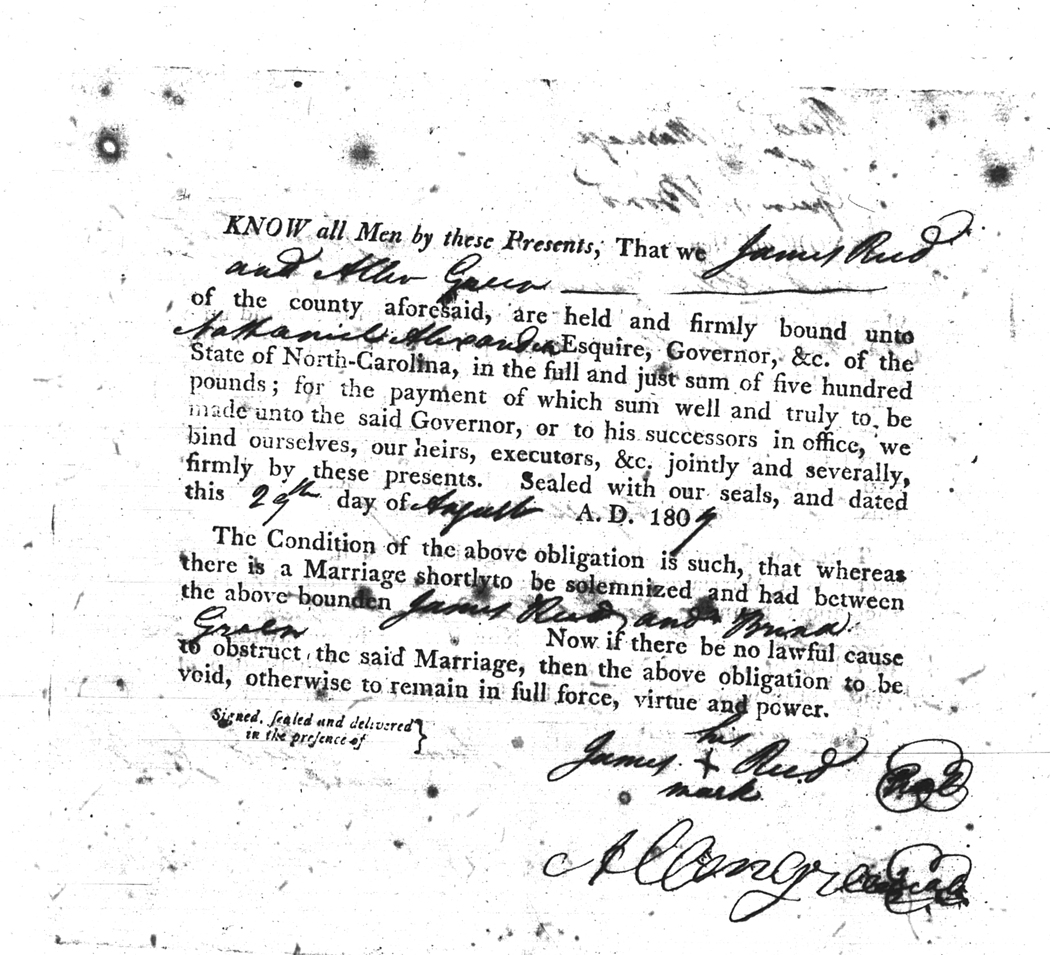 KNOW all Men by these Presents, That we James Reed
and Allen Green
of the county aforesaid, are held and firmly bound unto
Nathaniel Alexander Esquire, Governor, &c. of the
State of North-Carolina, in the full and just sum of five hundred
pounds; for the payment of which sum well and truly to be
made unto the said Governor, or to his successors in office, we
bind ourselves, our heirs, executors, &c. jointly and severally,
firmly by these presents. Sealed with our seals, and dated
this 29th day of August A. D. 1807
The Condition of the above obligation is such, that whereas
there is a Marriage shortly to be solemnized and had between
the above bounden James Reed and
Green Now if there be no lawful cause
to obstruct the said Marriage, then the above obligation to be
void, otherwise to remain in full force, virtue and power.
Signed, sealed and delivered
in the presence of }
his
James + Reed Seal
mark
Allen green Seal